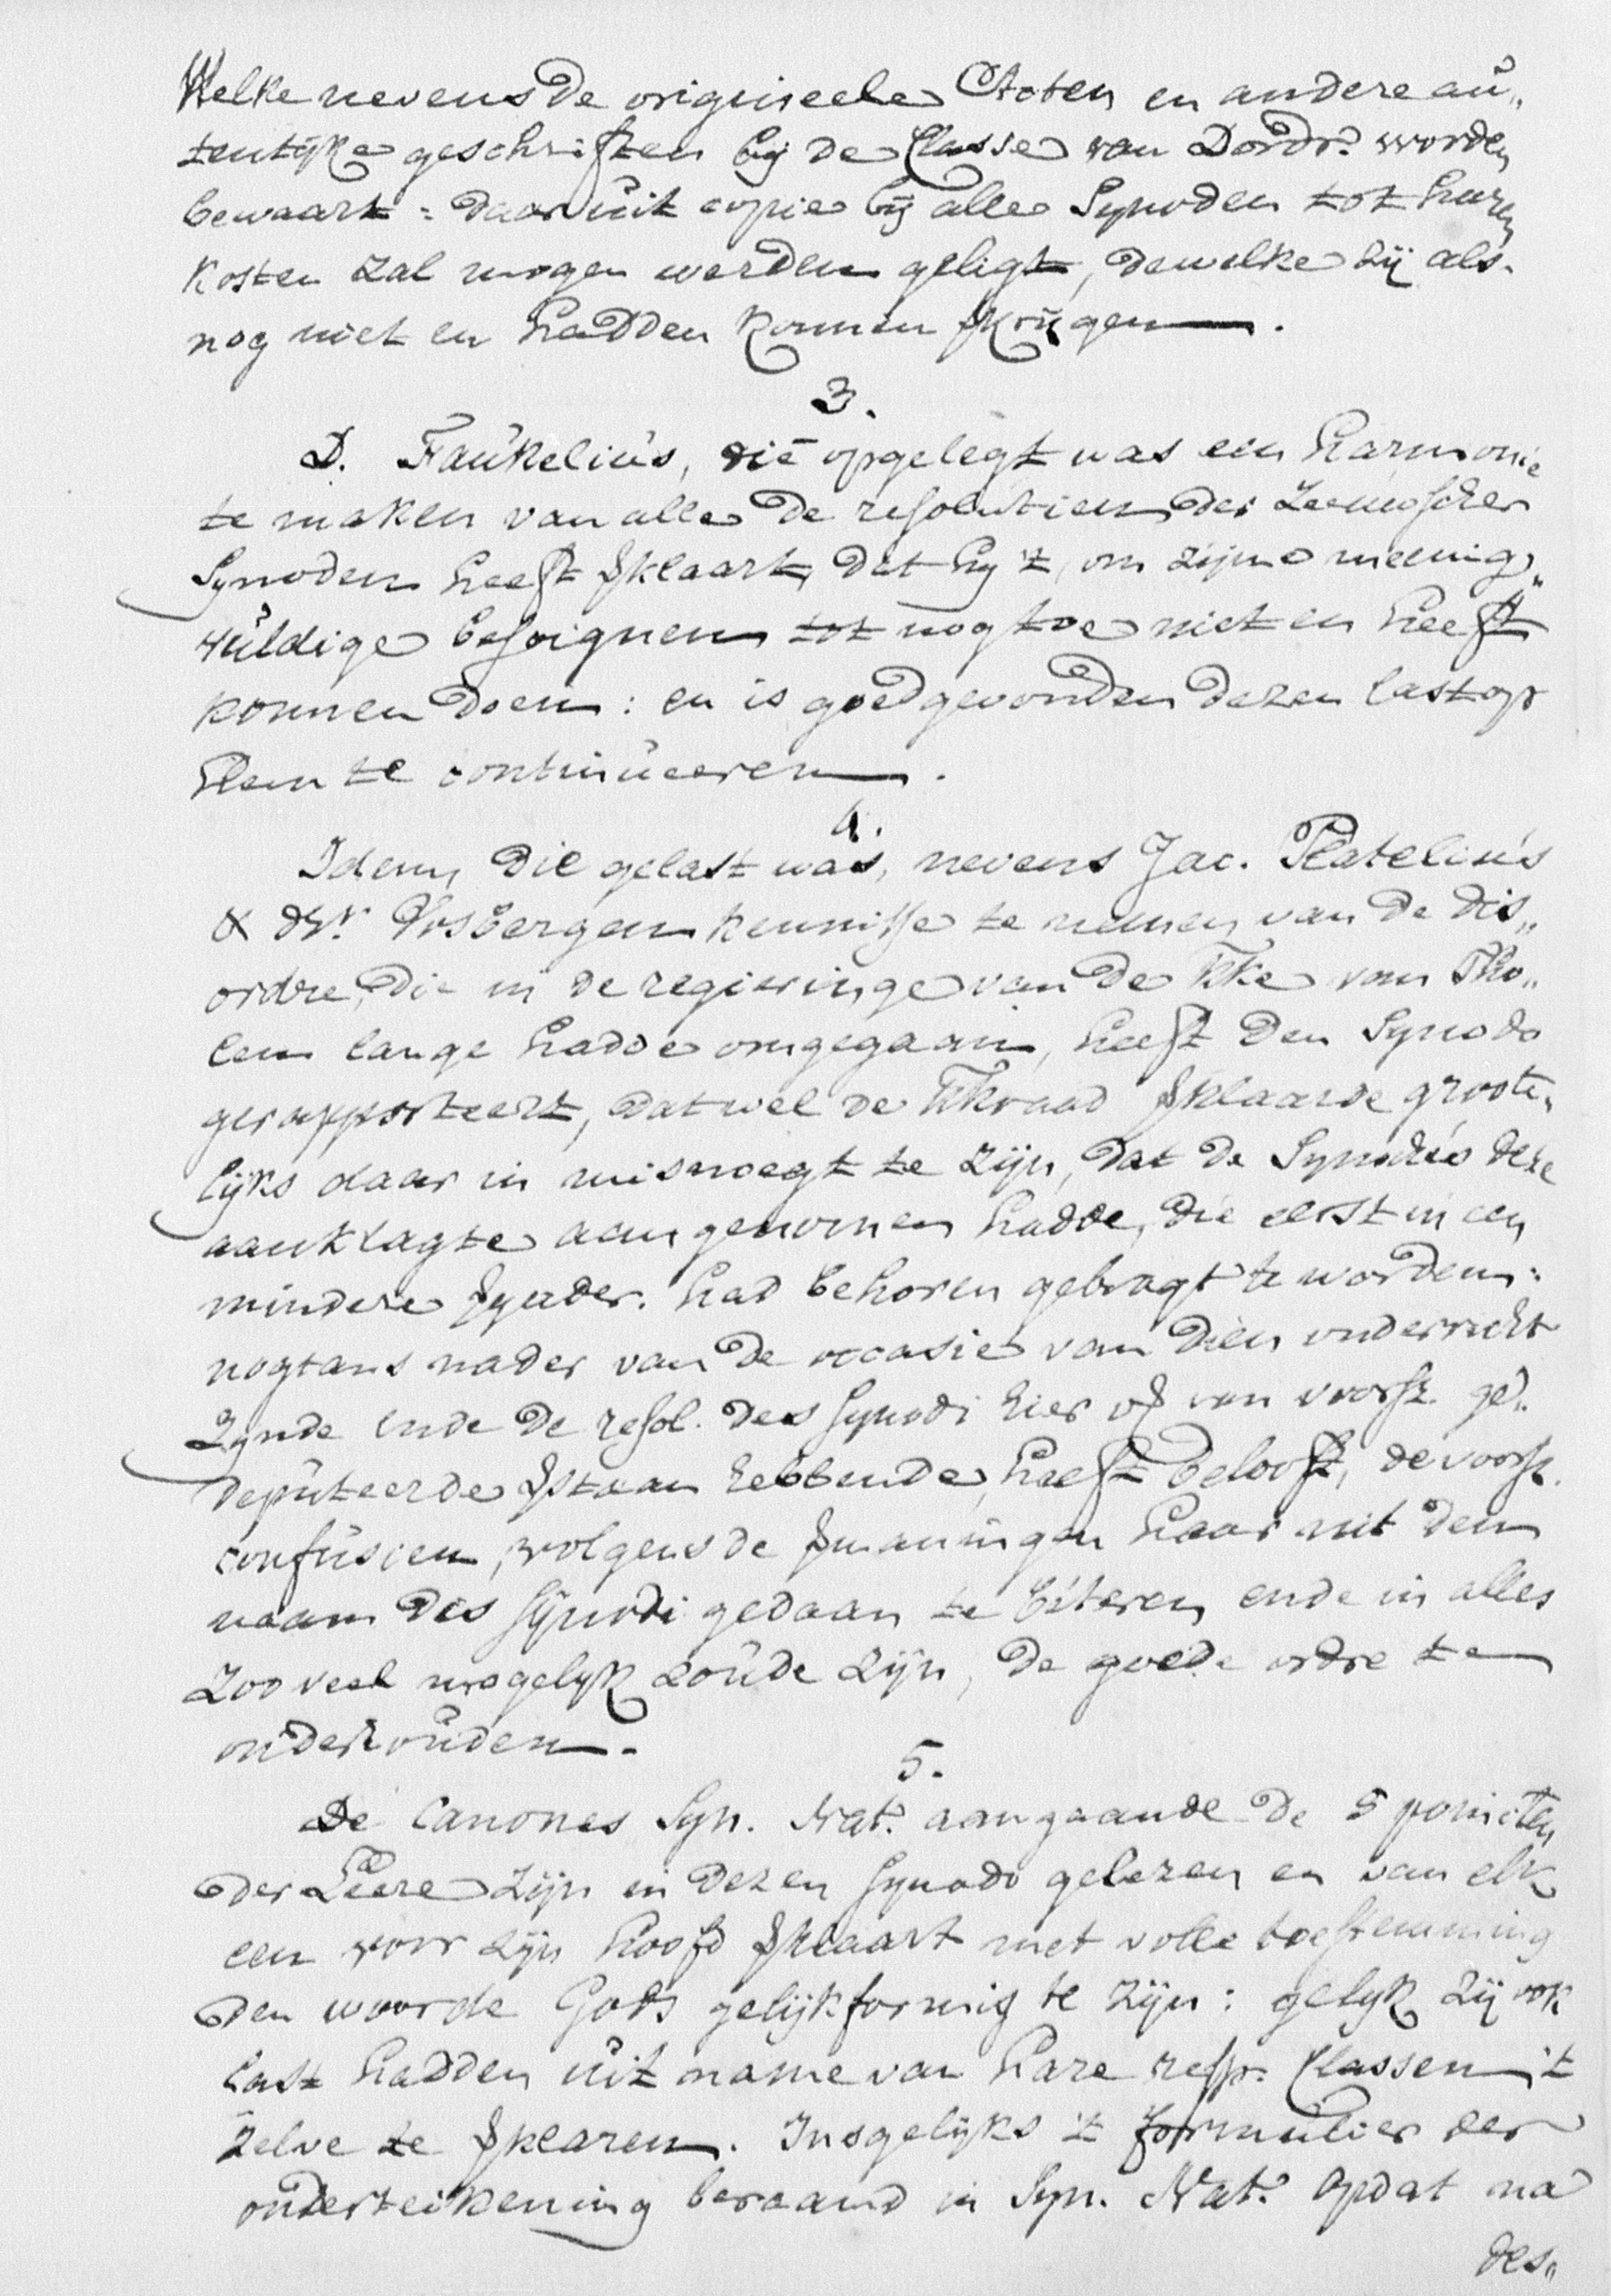 Welke nevens de origineele Acten en andere au„
tentijke geschriften bij de Classe van Dordr: worden
bewaart: daar uit copie bij alle Synoden tot haren
kosten zal mogen werden geligt, dewelke zij als
nog niet en hadden konnen krijgen.
3.
D. Faukelius, die opgelegt was een harmonie
te maken van alle de resolutien der Zeeuwscher
Synoden heeft vklaart, dat hij 't, om zijne menig„
vuldige besoignen tot nog toe niet en heeft
konnen doen: en is goedgevonden dezen last op
hem te continueeren.
4.
Idem, die gelast was, nevens Jac.
& Hr. Vosbergen kennisse te nemen van de dis„
ordre, die in de regieringe van de Kke van Tho„
len lange hadde omgegaan, heeft den Synodo
gerapporteert, dat wel de Kkraad vklaarde groote„
lijks daar in misnoegt te zijn, dat de Synodus deze
aanklagte aangenomen hadde, die eerst in een
mindere vgader. had behoren gebragt te worden:
nogtans nader van de occasie van dien onderricht
zynde ende de resol. des Synodi hier of van voorsz. ge„
deputeerde vstaan hebbende, heeft belooft, de voorsz.
confusien, volgens de vmaningen haar uit den
naam des Synodi gedaan te beteren ende in alles
zoo veel mogelyk zoude zijn, de goede ordre te
onderhouden.
5.
De Canones Syn. Nat: aangaande de 5 poincten
der Leere zijn in dezen Synodo gelezen en van elk
een voor zijn hoofd vklaart met volle toestemming
den woorde Gods gelijkformig te zijn: gelyk zij ook
last hadden uit name van hare resp. Classen 't
zelve te vklaren. Insgelijks 't formulier der
onderteikening beraamd in Syn. Nat: opdat na
des„